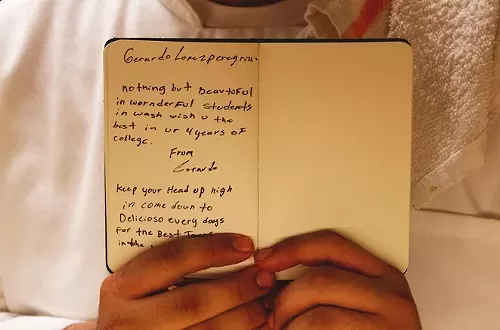 Gerardo Lopezperegrina
nothing but Beautoful
in wornderful students
in wash wish u the
best in ur 4 years of
college.
From
Gerardo
keep your Head up high
in come down to
Delicioso every days
For the Best
in the